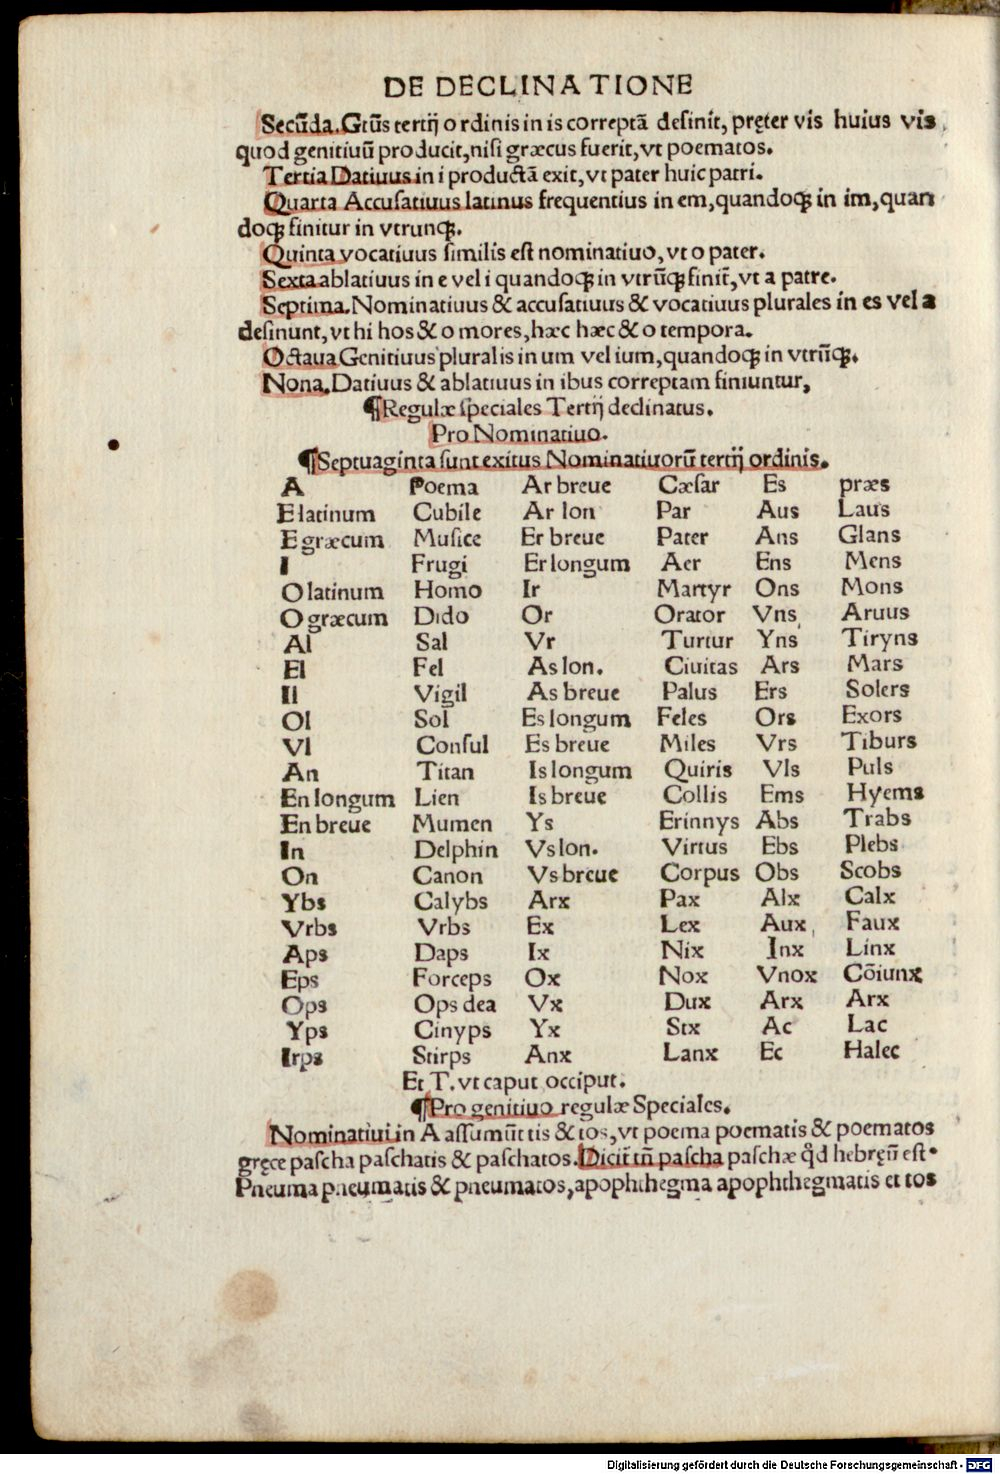 DE DECLINATIONE
Secūda. Gtūs tertij ordinis in is correptā desinit, pręter vis huius vis
quod genitiuū producit, nisi græcus fuerit, vt poematos.
Tertia Datiuus in i productā exit, vt pater huic patri.
Quarta Accusatiuus latinus frequentius in em, quandoqꝫ in im, quan
doqꝫ finitur in vtrunqꝫ.
Quinta vocatiuus similis est nominatiuo, vt o pater.
Sexta ablatiuus in e vel i quandoqꝫ in vtrūqꝫ finit̄, vt a patre.
Septima. Nominatiuus & accusatiuus & vocatiuus plurales in es vel a
desinunt, vt hi hos & o mores, hæc hæc & o tempora.
Octaua Genitiuus pluralis in um vel ium, quandoqꝫ in vtrūqꝫ.
Nona. Datiuus & ablatiuus in ibus correptam finiuntur,
¶Regulæ speciales Tertij declinatus.
Pro Nominatiuo.
¶Septuaginta sunt exitus Nominatiuorū tertij ordinis.
A Poema Ar breue Cæsar Es præs
E latinum Cubile Ar lon Par Aus Laus
E græcum Musice Er breue Pater Ans Glans
I Frugi Er longum Aer Ens Mens
O latinum Homo Ir Martyr Ons Mons
O græcum Dido Or Orator Vns Aruus
Al Sal Vr Turtur Yns Tiryns
El Fel As lon. Ciuitas Ars Mars
Il Vigil As breue Palus Ers Solers
Ol Sol Es longum Feles Ors Exors
Vl Consul Es breue Miles Vrs Tiburs
An Titan Is longum Quiris Vls Puls
En longum Lien Is breue Collis Ems Hyems
En breue Mumen Ys Erinnys Abs Trabs
In Delphin Vs lon. Virtus Ebs Plebs
On Canon Vs breue Corpus Obs Scobs
Ybs Calybs Arx Pax Alx Calx
Vrbs Vrbs Ex Lex Aux Faux
Aps Daps Ix Nix Inx Linx
Eps Forceps Ox Nox Vnox Cōiunx
Ops Ops dea Vx Dux Arx Arx
Yps Cinyps Yx Stx Ac Lac
Irps Stirps Anx Lanx Ec Halec
Et T. vt caput occiput.
¶Pro genitiuo regulæ Speciales.
Nominatiui in A assumūt tis & tos, vt poema poematis & poematos
gręce pascha paschatis & paschatos. Dicit̄ tn̄ pascha paschæ qd̄ hebręū est.
Pneuma pneumatis & pneumatos, apophthegma apophthegmatis et tos
Digitalisierung gefördert durch die Deutsche Forschungsgemeinschaft - DFG